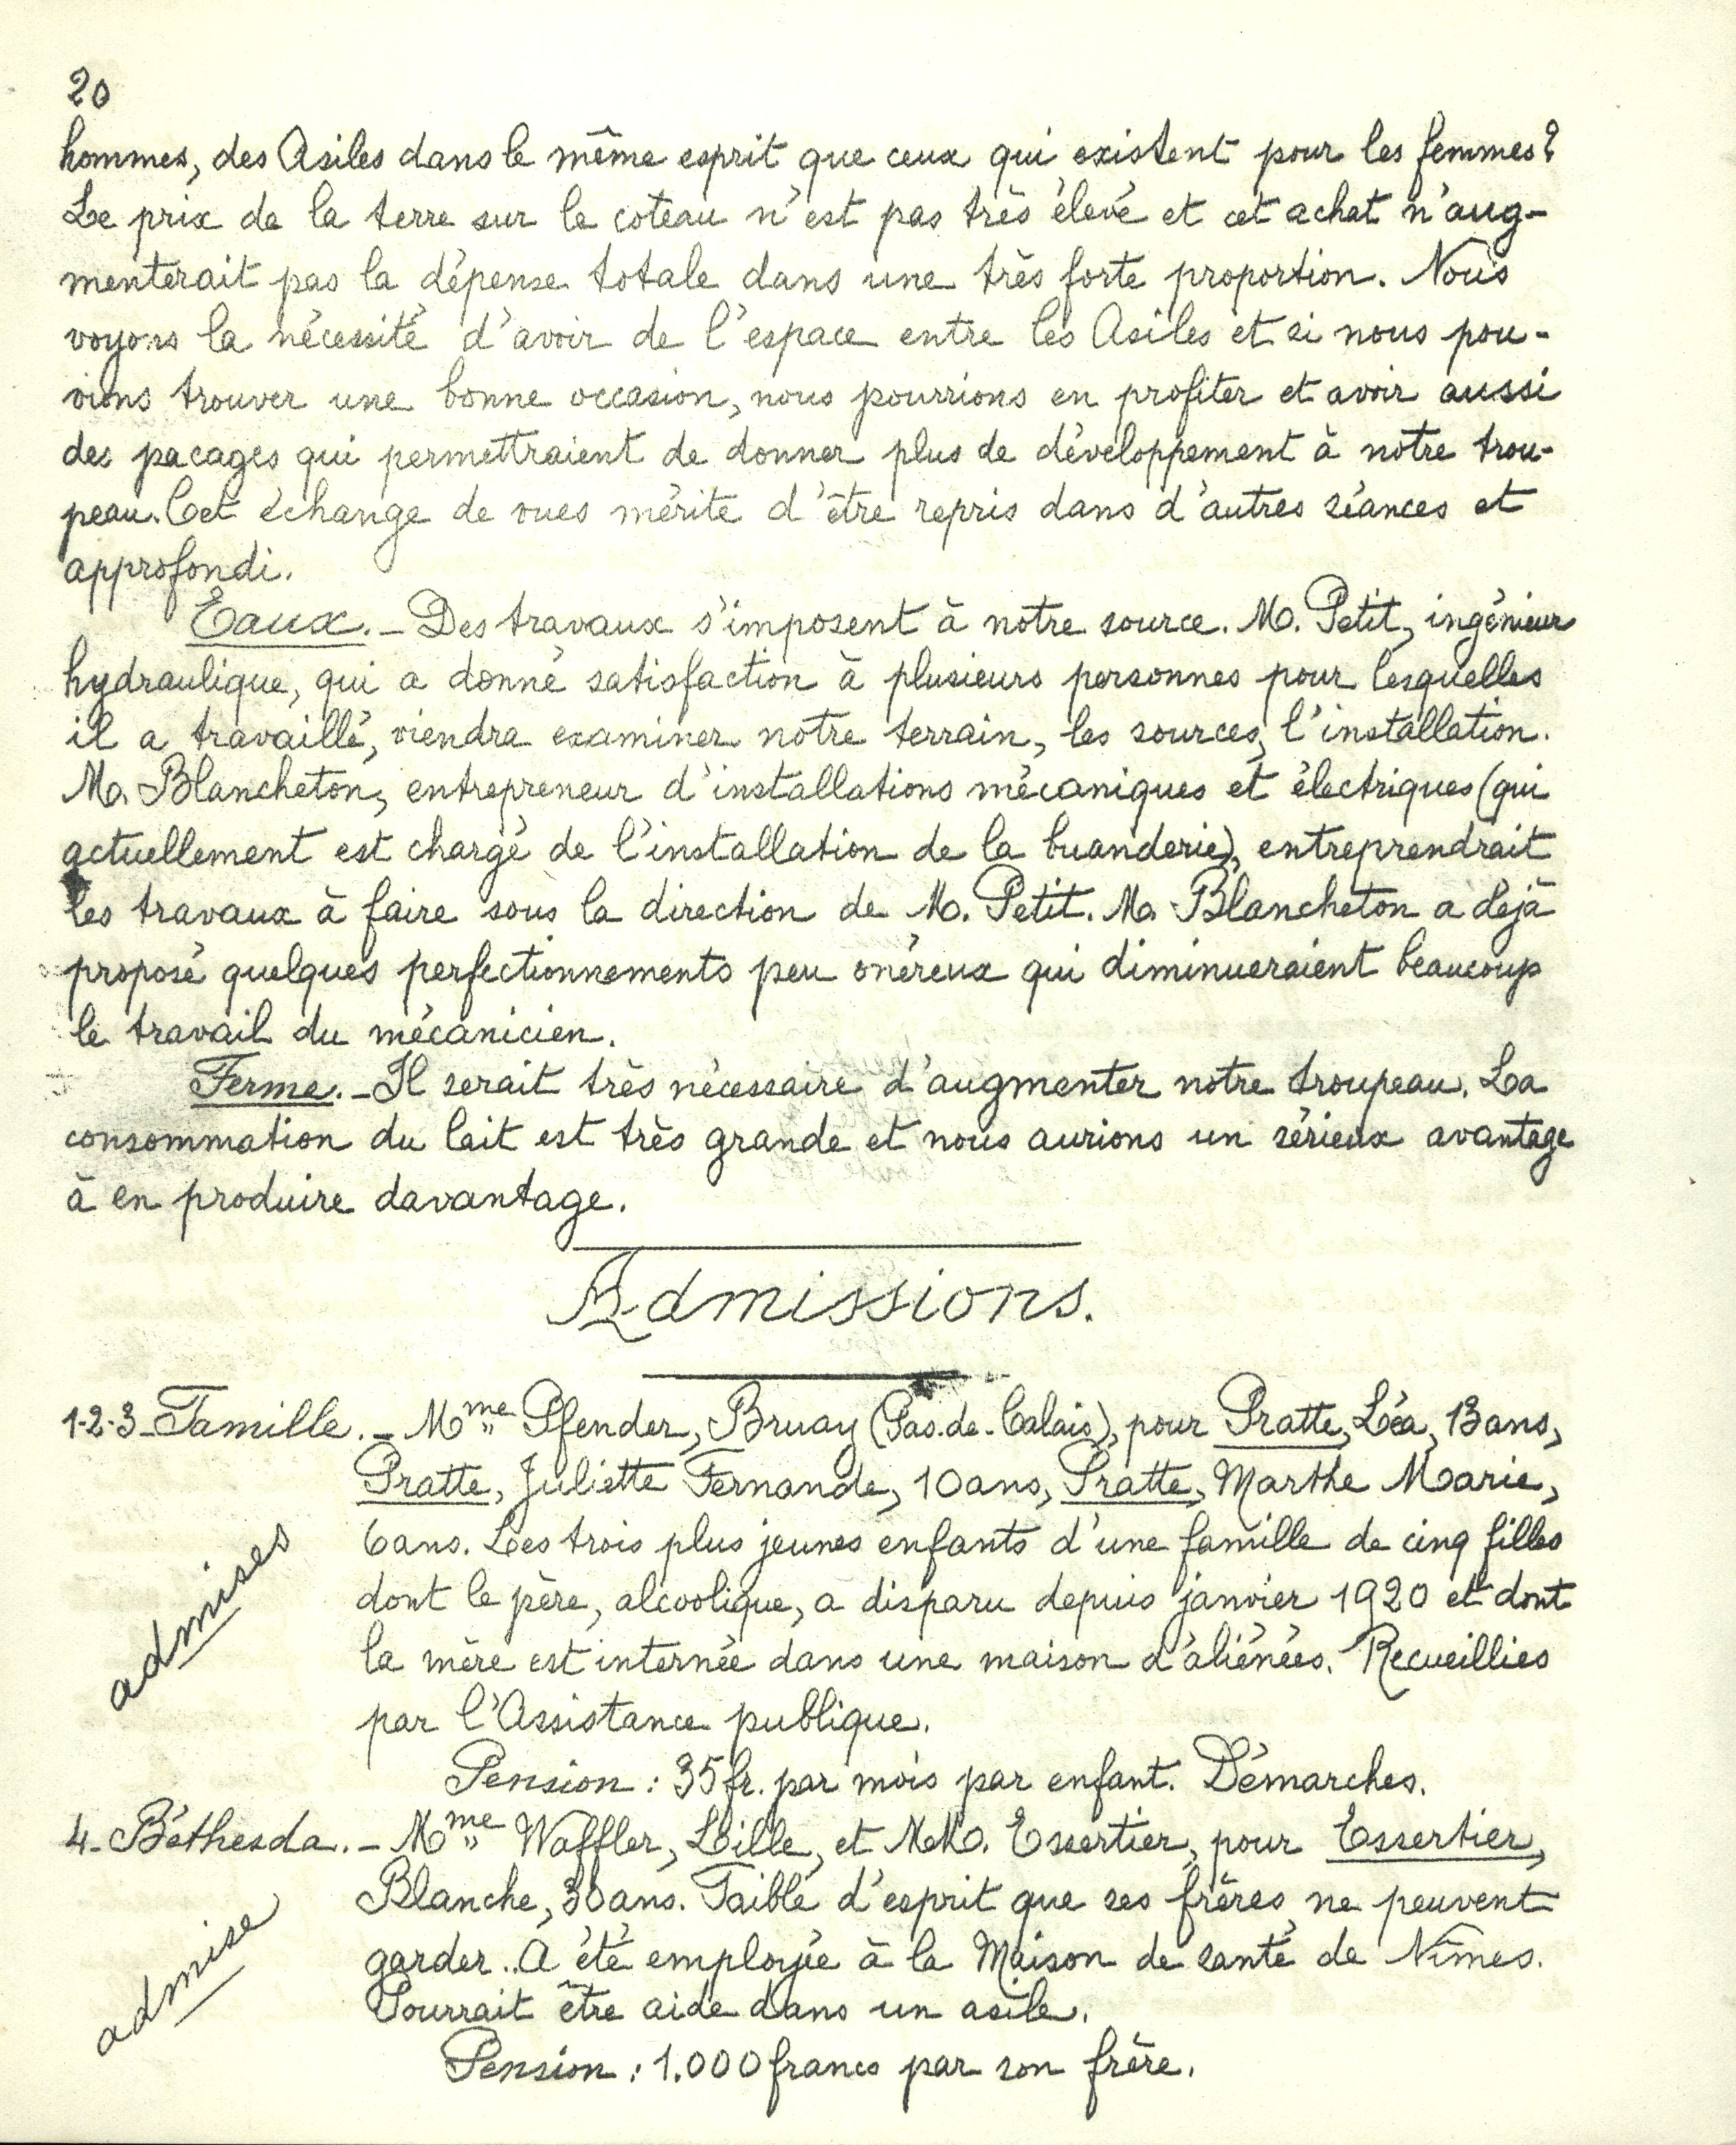 20
hommes, des Asiles dans le même esprit que ceux qui existent pour les femmes?
Le prix de la terre sur le coteau n'est pas très élevé et cet achat n'aug-
menterait pas la dépense totale dans une très forte proportion. Nous
voyons la nécessité d'avoir de l'espace entre les Asiles et si nous pou-
vions trouver une bonne occasion, nous pourrions en profiter et avoir aussi
des pacages qui permettraient de donner plus de développement à notre trou-
peau. Cet échange de vues mérite d'être repris dans d'autres séances et
approfondi.
Eaux. - Des travaux s'imposent à notre source. M. Petit, ingénieur
hydraulique, qui a donné satisfaction à plusieurs personnes pour lesquelles
il a travaillé, viendra examiner notre terrain, les sources, l'installation.
M. Blancheton, entrepreneur d'installations mécaniques et électriques (qui
actuellement est chargé de l'installation de la buanderie), entreprendrait
les travaux à faire sous la direction de M. Petit. M. Blancheton a déjà
proposé quelques perfectionnements peu onéreux qui diminueraient beaucoup
le travail du mécanicien.
Ferme. - Il serait très nécessaire d'augmenter notre troupeau. La
consommation du lait est très grande et nous aurions un sérieux avantage
à en produire davantage.
Admissions.
1-2-3 - Famille. - Mme Pfender, Bruay (Pas-de-Calais), pour Pratte, Léa, 13 ans,
Pratte, Juliette Fernande, 10 ans, Pratte, Marthe Marie,
6 ans. Les trois plus jeunes enfants d'une famille de cinq filles
dont le père, alcoolique, a disparu depuis janvier 1920 et dont
la mère est internée dans une maison d'aliénées. Recueillies
par l'Assistance publique.
admises
Pension : 35 fr. par mois par enfant. Démarches.
4 - Béthesda. - Mme Waffler, Lille, et MM. Essertier, pour Essertier,
Blanche, 30 ans. Faible d'esprit que ses frères ne peuvent
garder. A été employée à la Maison de santé de Nîmes.
Pourrait être aide dans un asile.
admise
Pension : 1.000 francs par son frère.